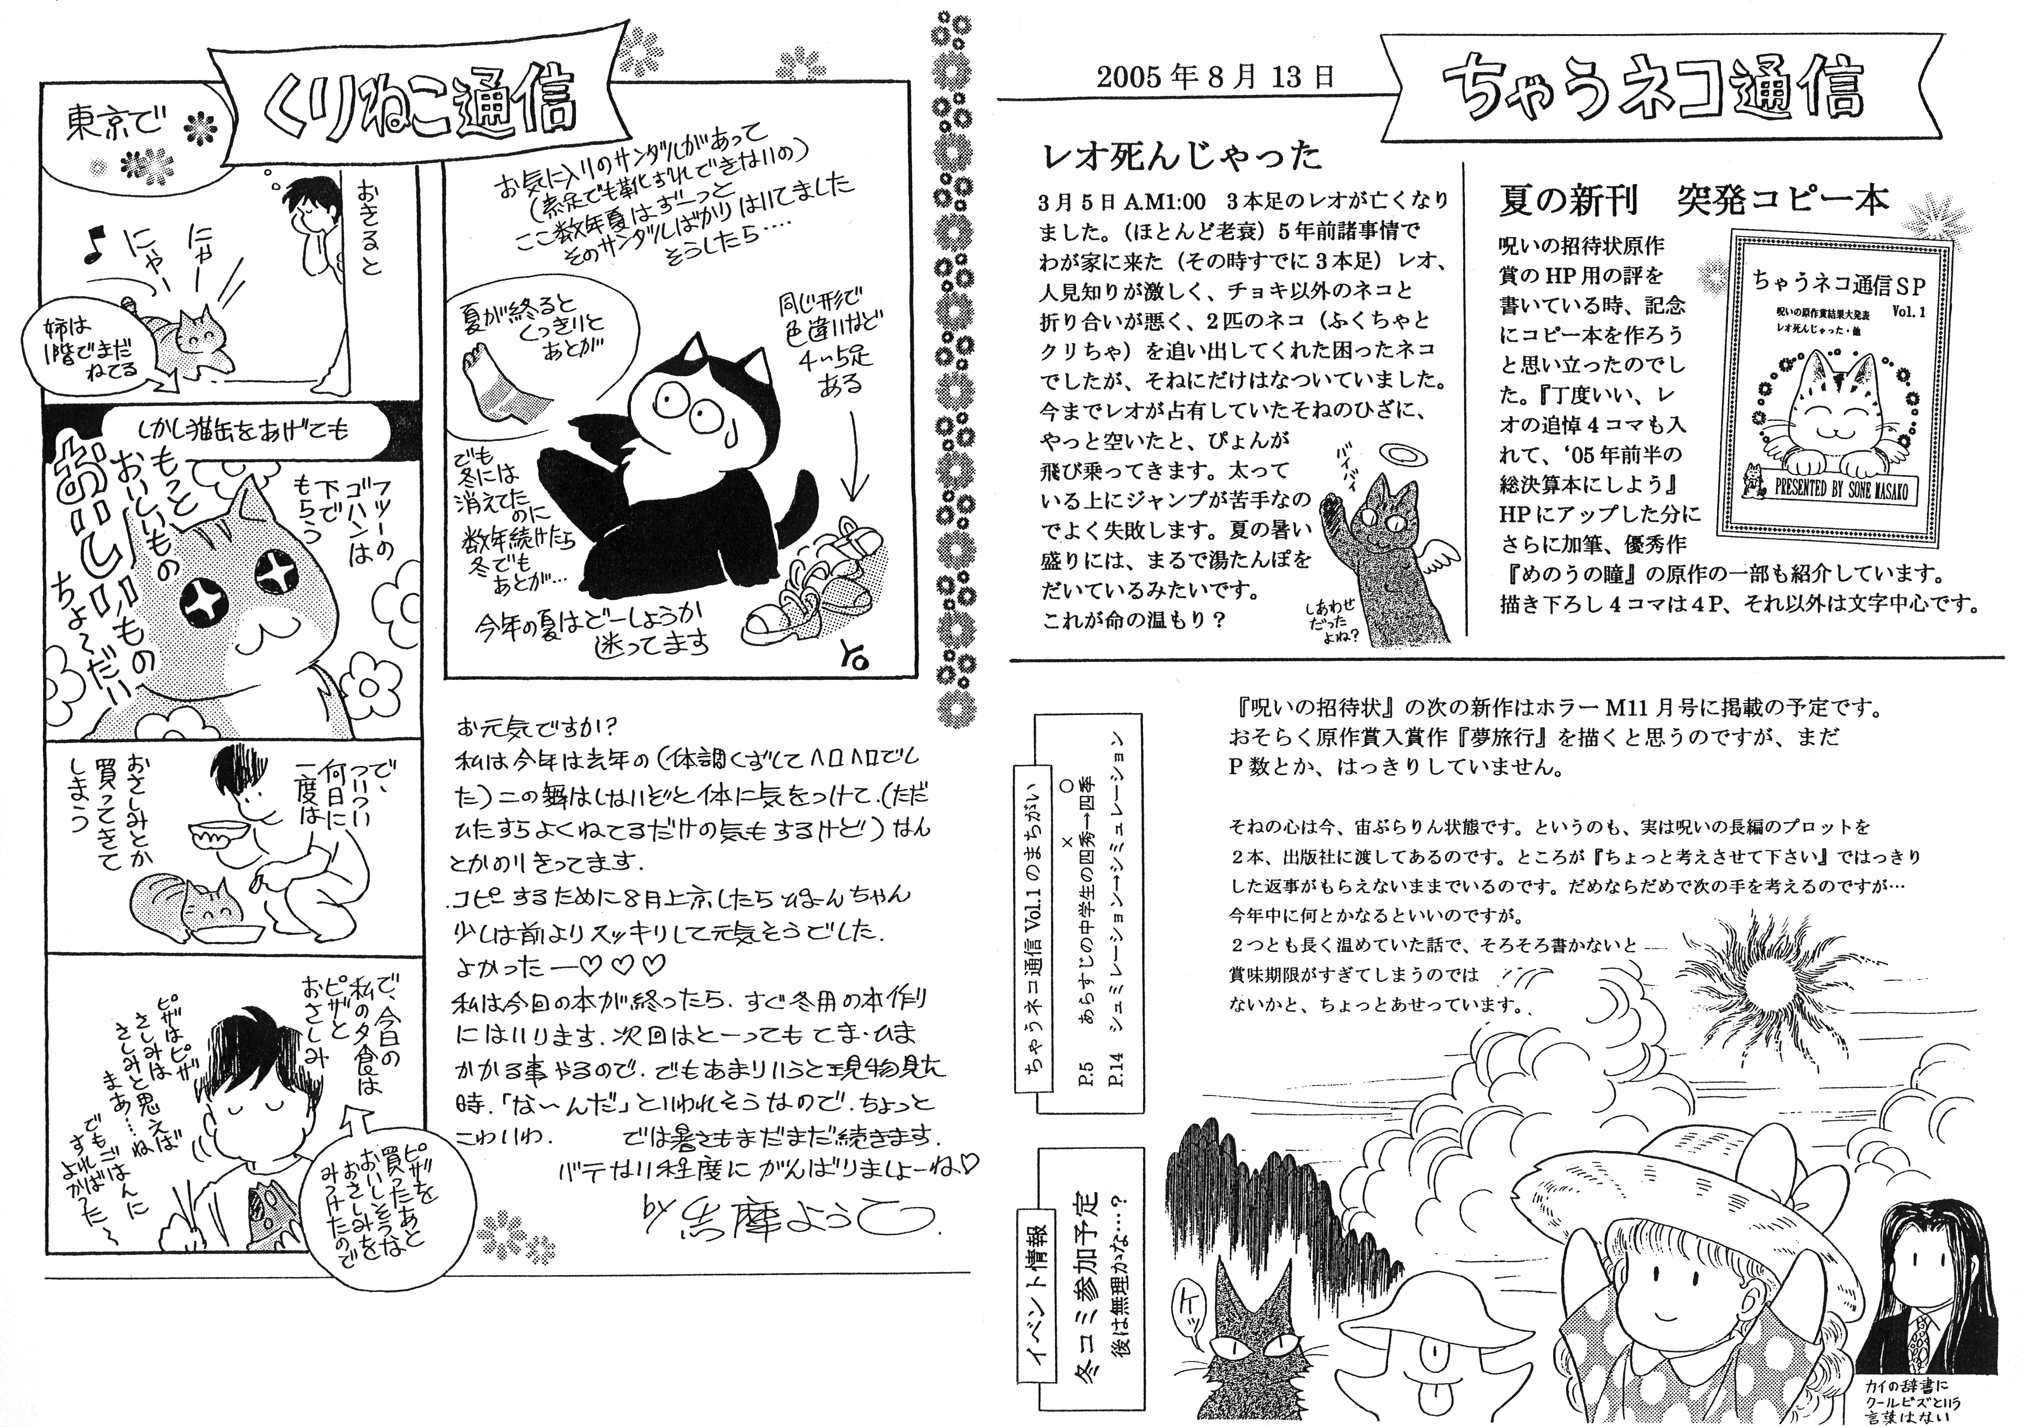 くりねこ通信
東京で
おきると
にゃー
にゃー
姉は
1階でまだ
ねてる
しかし猫缶をあげても
フツーの
ゴハンは
下で
もらう
もっと
おいしいもの
おいしいもの
ちょ〜だい
で、
ついつい
何日に
一度は
おさしみとか
買ってきて
しまう
で、今日の
私の夕食は
ピザと
おさしみ
ピザはピザ
さしみは
さしみと思えば
まあ…ね
でもごはんに
すれば
よかった〜
ピザを
買ったあと
おいしそうな
おさしみを
みつけたので
お気に入りのサンダルがあって
(素足でも靴ずれできないの)
ここ数年夏はずーっと
そのサンダルばかりはいてました
そうしたら‥‥
夏が終ると
くっきりと
あとが
同じ形で
色違いなど
4〜5足
ある
でも
冬には
消えてた
のに
数年続けたら
冬でも
あとが…
今年の夏はどーしようか
迷ってます
YO
お元気ですか?
私は今年は去年の(体調くずしてヘロヘロでし
た)二の舞はしないぞと体に気をつけて.(ただ
ひたすらよくねてるだけの気もするけど)なん
とかのりきってます.
コピーするために8月上京したらぴょーんちゃん
少しは前よりスッキリして元気そうでした.
よかったー♡♡♡
私は今回の本が終ったら.すぐ冬用の本作り
にはいります.次回はとーっても てま・ひま
かかる事やるので.でもあまりいうと現物見た
時.「な〜んだ」といわれそうなので.ちょっと
こわいわ.
では暑さもまだまだ続きます.
バテない程度にがんばりましょーね♡
by 志摩ようこ
2005年8月13日
ちゃうネコ通信
レオ死んじゃった
3月5日 A.M1:00 3本足のレオが亡くなり
ました。(ほとんど老衰) 5年前諸事情で
わが家に来た(その時すでに3本足)レオ、
人見知りが激しく、チョキ以外のネコと
折り合いが悪く、2匹のネコ(ふくちゃと
クリちゃ)を追い出してくれた困ったネコ
でしたが、そねにだけはなついていました。
今までレオが占有していたそねのひざに、
やっと空いたと、ぴょんが
飛び乗ってきます。太って
いる上にジャンプが苦手なの
でよく失敗します。夏の暑い
盛りには、まるで湯たんぽを
だいているみたいです。
これが命の温もり?
バイバイ
しあわせ
だった
よね?
夏の新刊 突発コピー本
呪いの招待状原作
賞のHP用の評を
書いている時、記念
にコピー本を作ろう
と思い立ったのでし
た。『丁度いい、レ
オの追悼4コマも入
れて、‘05年前半の
総決算本にしよう』
HPにアップした分に
さらに加筆、優秀作
『めのうの瞳』の原作の一部も紹介しています。
描き下ろし4コマは4P、それ以外は文字中心です。
ちゃうネコ通信SP
Vol.1
呪いの原作賞結果大発表
レオ死んじゃった・他
PRESENTED BY SONE MASAKO
『呪いの招待状』の次の新作はホラーM11月号に掲載の予定です。
おそらく原作賞入賞作『夢旅行』を描くと思うのですが、まだ
P数とか、はっきりしていません。
そねの心は今、宙ぶらりん状態です。というのも、実は呪いの長編のプロットを
2本、出版社に渡してあるのです。ところが『ちょっと考えさせて下さい』ではっきり
した返事がもらえないままでいるのです。だめならだめで次の手を考えるのですが…
今年中に何とかなるといいのですが。
2つとも長く温めていた話で、そろそろ書かないと
賞味期限がすぎてしまうのでは
ないかと、ちょっとあせっています。
ちゃうネコ通信 Vol.1のまちがい
× ○
P.5 あらすじの中学生の四秀→四季
P.14 シュミレーション→シミュレーション
イベント情報
冬コミ参加予定
後は無理かな…?
ケッ
カイの辞書に
クールビズという
言葉はない